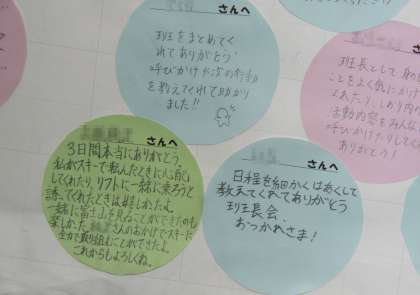 さんへ
班をまとめてく
れてありがとう
呼びかけや次の行動
を教えてくれて助かり
ました!!
班長として
ことをよく気にかけ
くれたり、
活動内容をみんな
呼びかけたりしてく
ありがとう!
さんへ
3日間本当にありがとう。
私がスキーで転んだときに心配
してくれたり、リフトに一緒に乗ろうと
誘ってくれたときは嬉しかったよ。
一緒に富士山を見ることができたのも
楽しかった。さんのおかげでスキーに
全力で取り組むことができたよ。
これからもよろしくね。
さんへ
日程を細かくはあくして
教えてくれてありがとう
班長会、
おつかれさま!